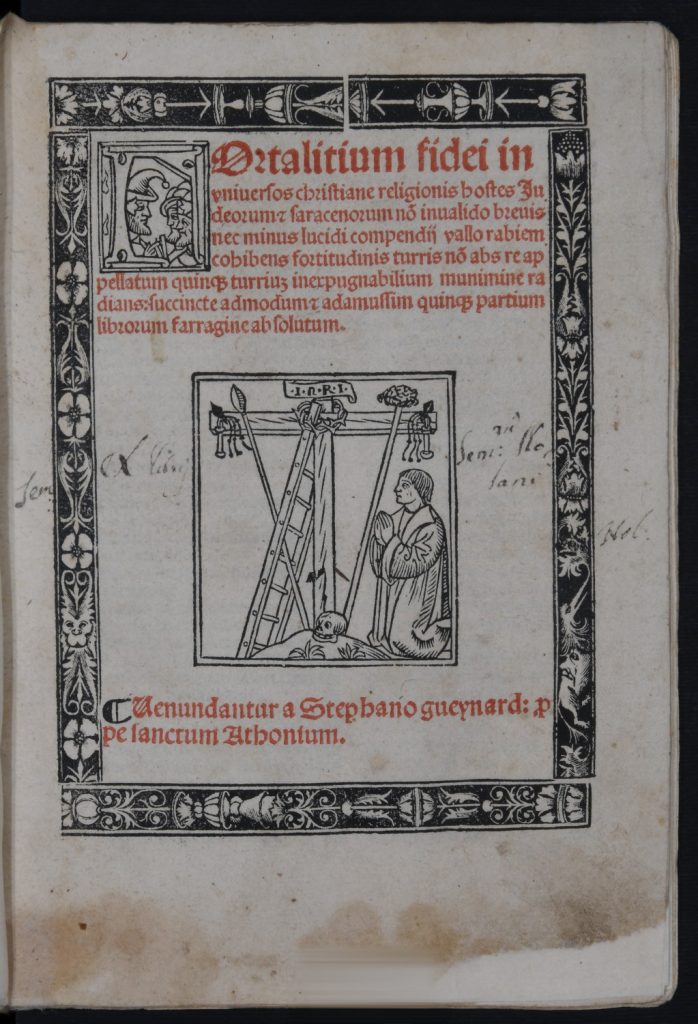 Ortalitium fidei in
vniuersos christiane religionis hostes Ju
deorum ⁊ saracenorum nō inualido breuis
nec minus lucidi compendij vallo rabiem
cohibens fortitudinis turris nō abs re ap
pellatum quinqꝫ turriuꝫ inexpugnabilium munimine ra
dians: succincte admodum ⁊ adamussim quinqꝫ partium
librorum farragine absolutum.
·I·n·R·I·
Ex libris
Sem:
¶ Uenundantur a Stephano gueynard: ꝓ
pe sanctum Athonium.